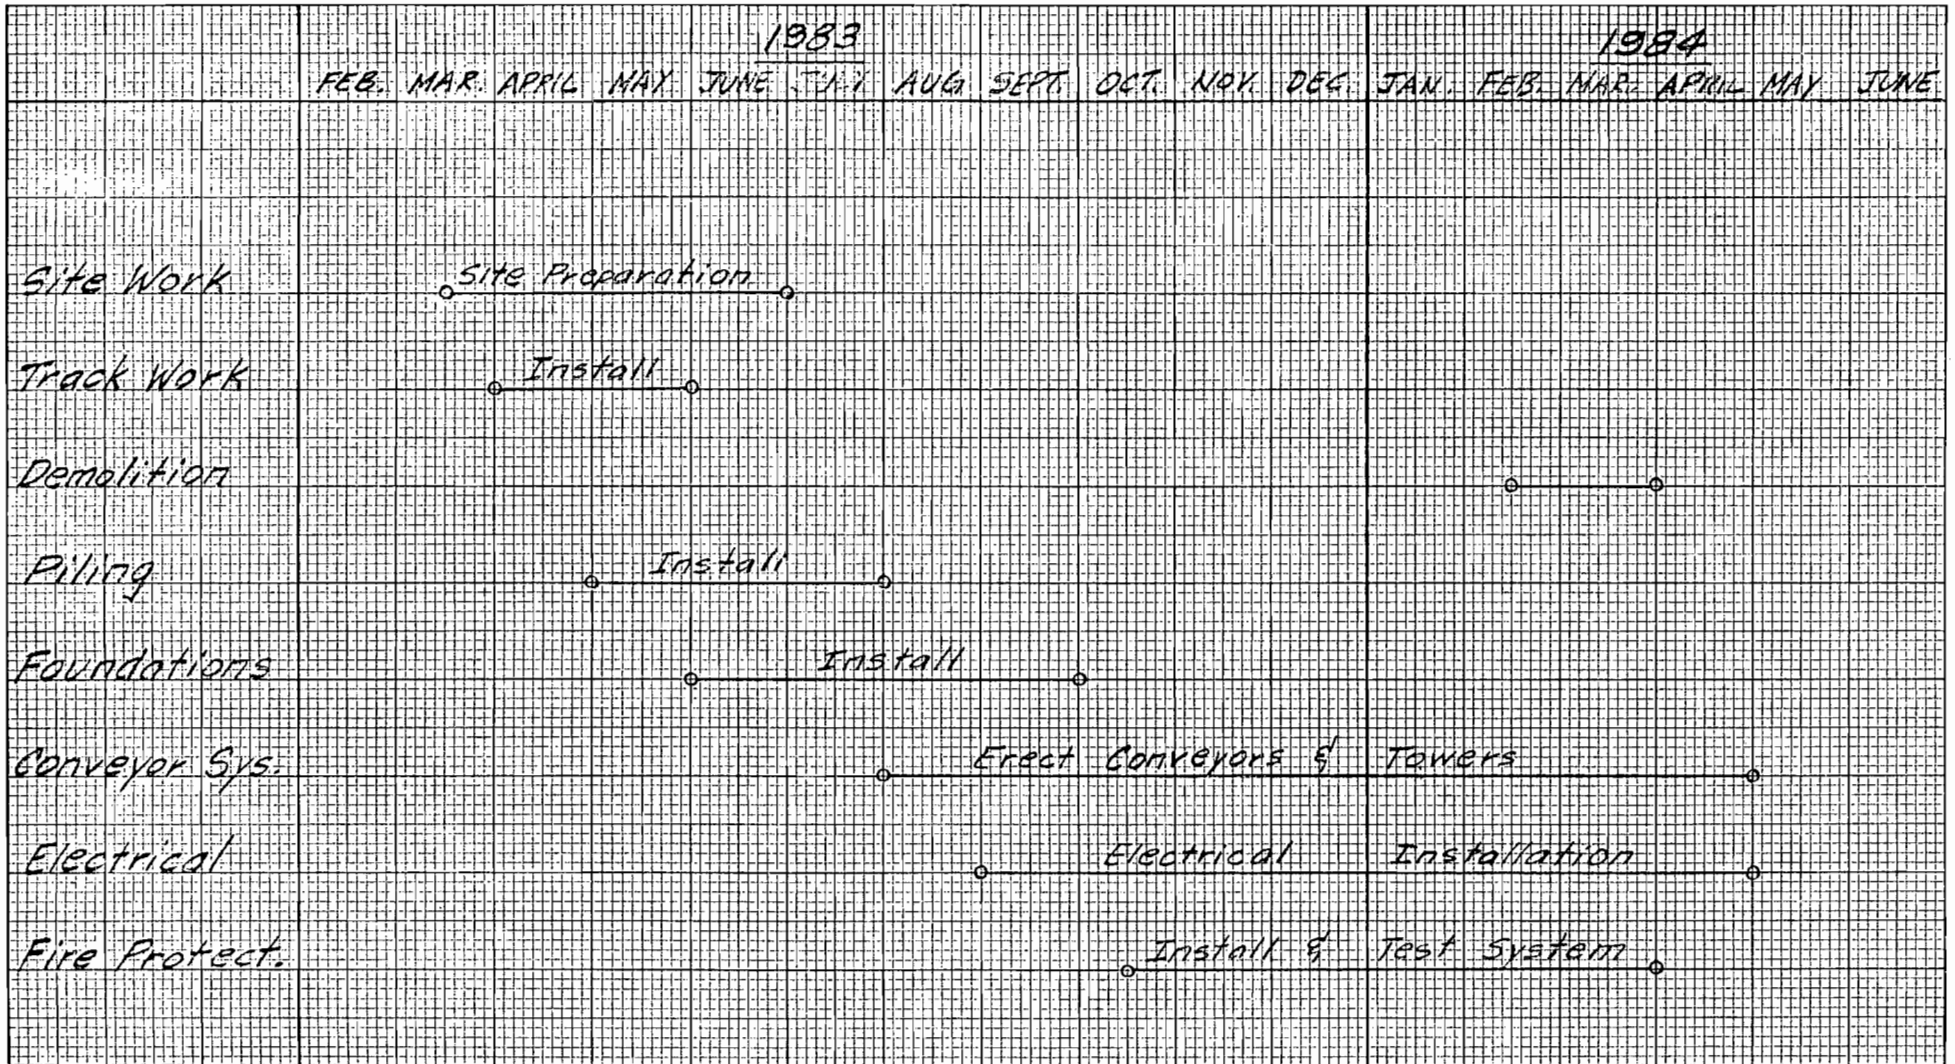 1983 1984
FEB. MAR. APRIL MAY JUNE JULY AUG. SEPT. OCT. NOV. DEC. JAN. FEB. MAR. APRIL MAY JUNE
Site Work Site Preparation
Track Work Install
Demolition
Piling Install
Foundations Install
Conveyor Sys. Erect Conveyors & Towers
Electrical Electrical Installation
Fire Protect. Install & Test System